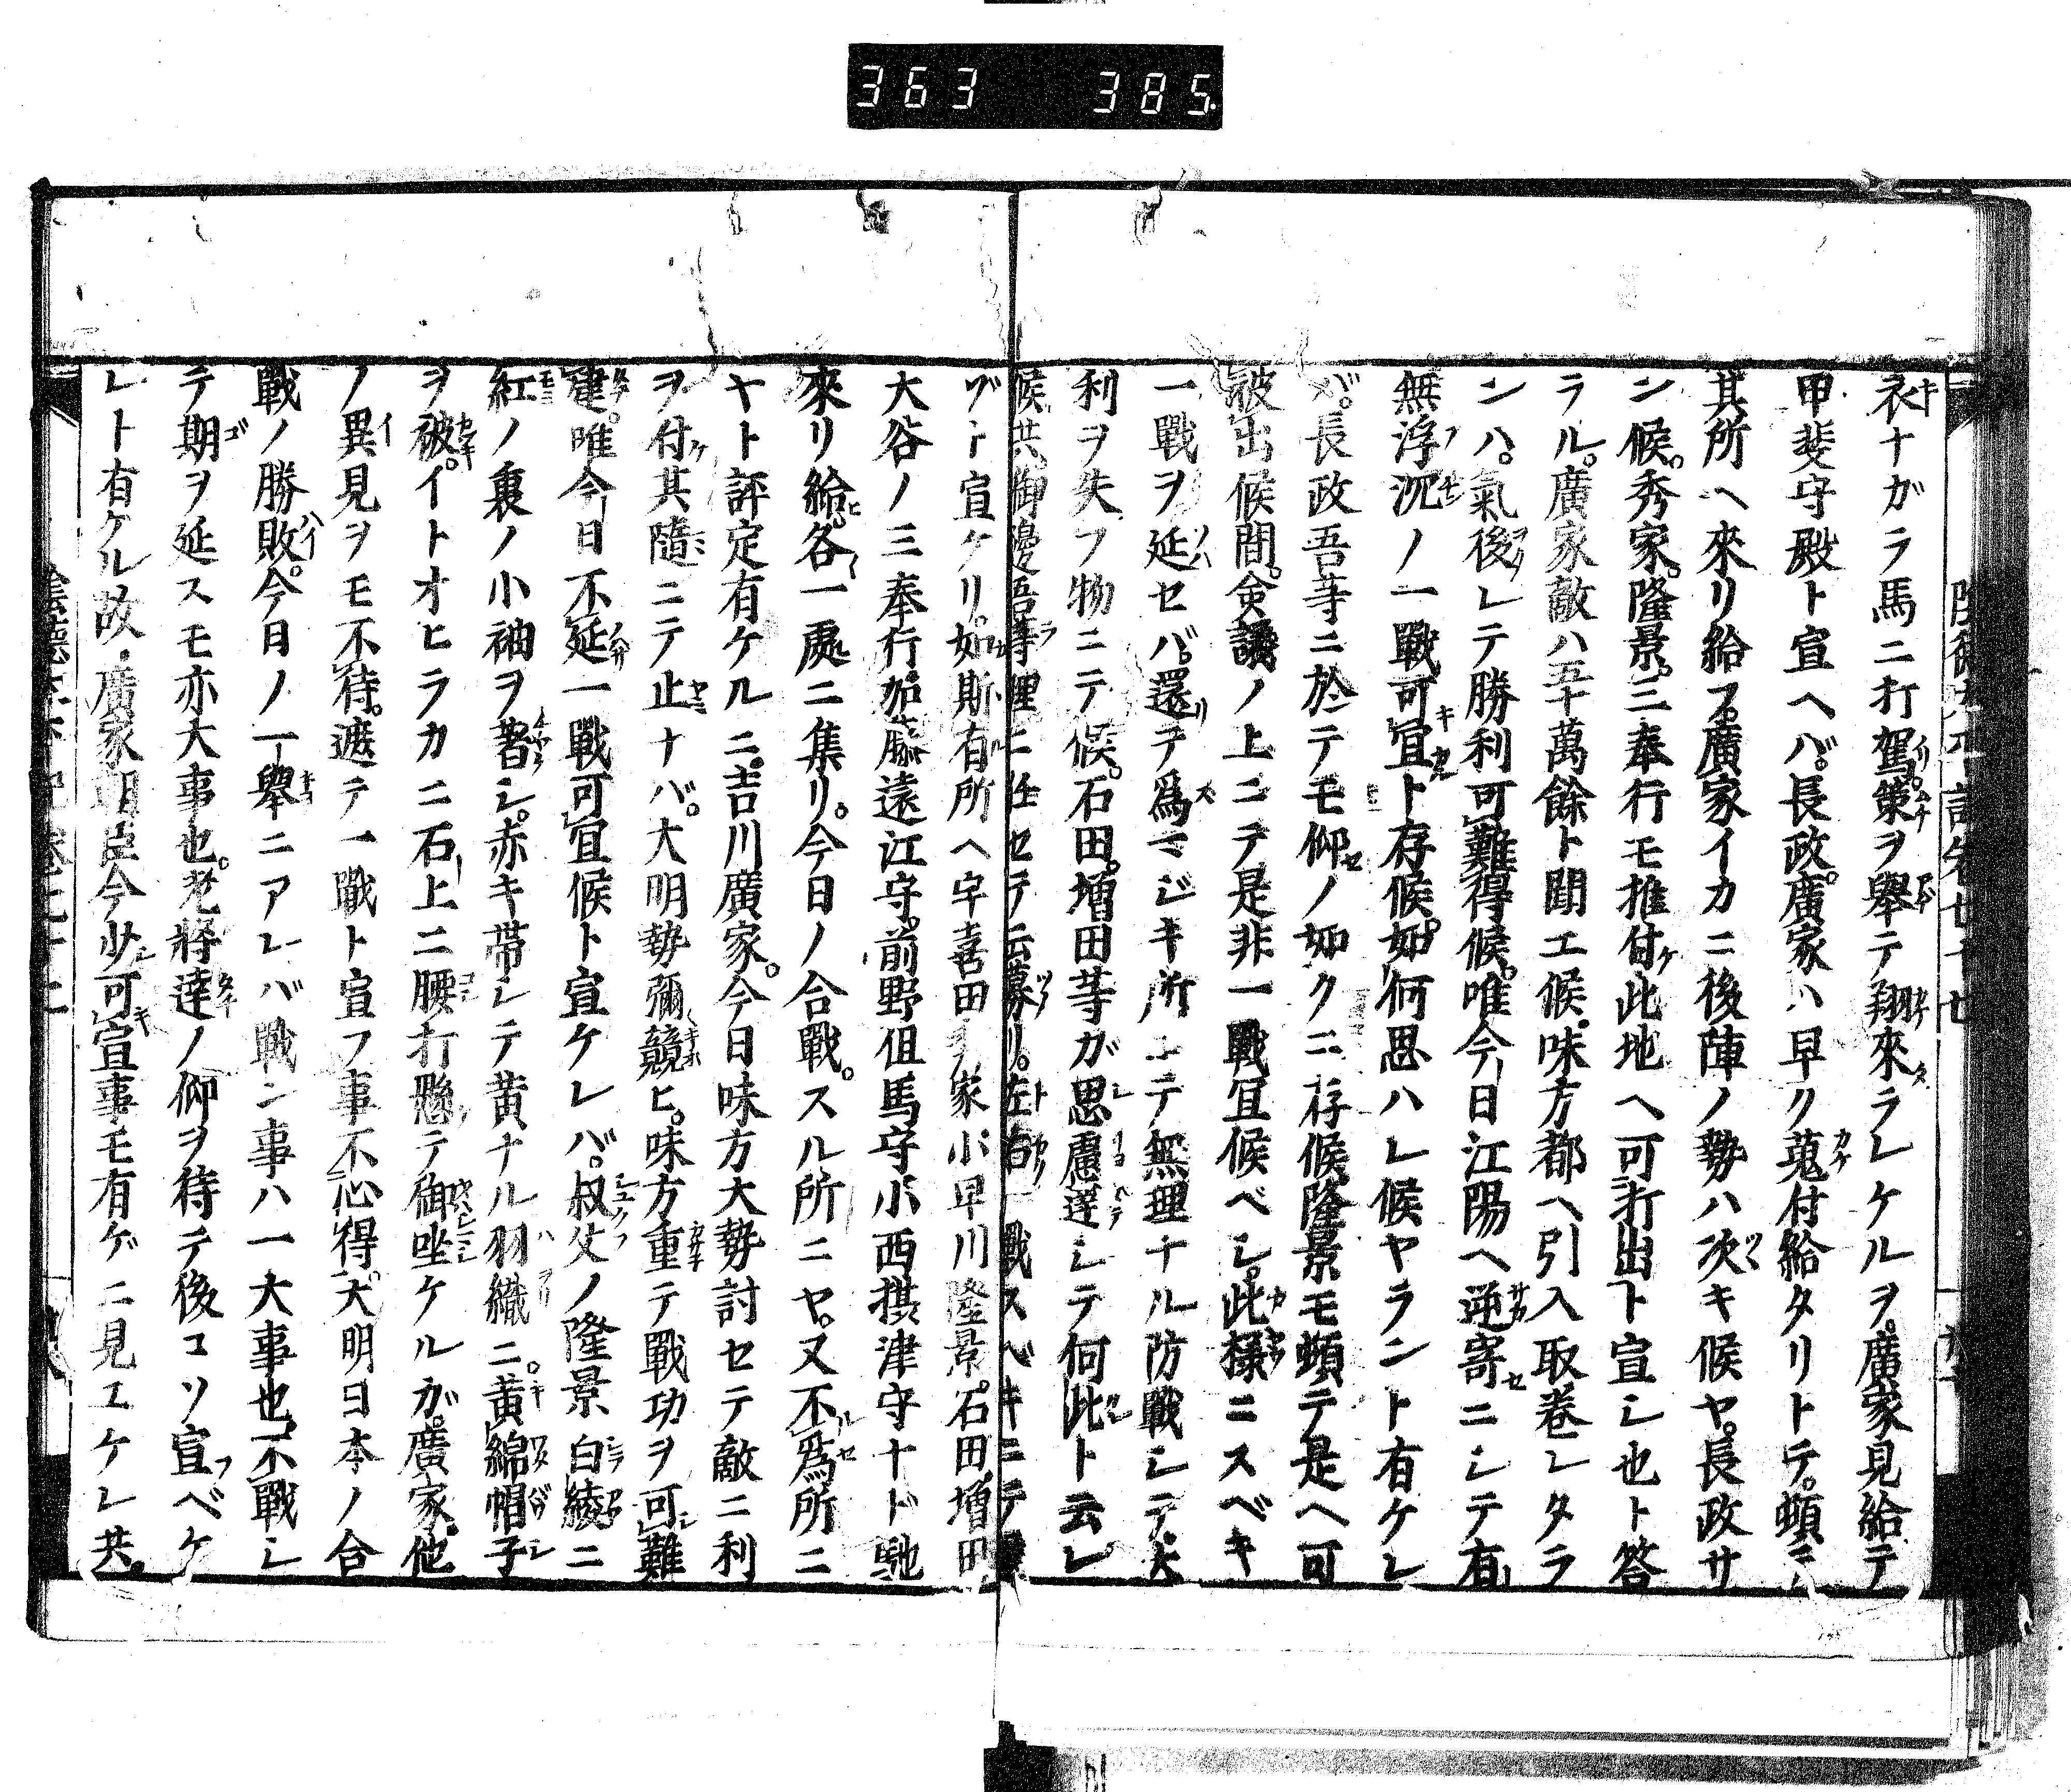 363 385
衣ナガラ馬ニ打駕。策ヲ擧テ翔來ラレケルヲ。廣家見給テ
甲斐守殿ト宣ヘバ。長政。廣家ハ早ク蒐付給タリトテ。頓テ
其所ヘ來リ給フ。廣家イカニ後陣ノ勢ハ次キ候ヤ。長政サ
ン候。秀家。隆景。三奉行モ推付此地ヘ可打出ト宣シ也ト答
ラル。廣家敵ハ五十萬餘ト聞エ候。味方都ヘ引入取卷レタラ
ンハ。氣後レテ勝利可難得候。唯今日江陽ヘ逆寄ニシテ有
無浮沉ノ一戰可宜ト存候。如何思ハレ候ヤラント有ケレ
バ。長政吾等ニ於テモ仰ノ如クニ存候隆景モ頓テ是ヘ可
被出候間。僉議ノ上ニテ是非一戰宜候ベシ。此樣ニスベキ
一戰ヲ延セバ。還テ爲マジキ所ニテ無理ナル防戰シテ。大
利ヲ失フ物ニテ候。石田。增田等ガ思慮達シテ何此ト云レ
候共。御邊吾等理ニ任セテ云募リ。左右一戰スベキニテ
ヅト宣ケリ。如斯有所ヘ宇喜田秀家小早川隆景。石田。增田
大谷ノ三奉行。加藤遠江守。前野但馬守小西攝津守ナド馳
來リ給。各一處ニ集リ。今日ノ合戰。スル所ニヤ。又不爲所ニ
ヤト評定有ケルニ。吉川廣家。今日味方大勢討セテ敵ニ利
ヲ付其隨ニテ止ナバ。大明勢彌競ヒ。味方重テ戰功ヲ可難
建。唯今日不延一戰可宜候ト宣ケレバ。叔父ノ隆景白綾ニ
紅ノ裏ノ小袖ヲ著シ。赤キ帶シテ黃ナル羽織ニ。黃綿帽子
ヲ被。イトオヒラカニ石上ニ腰打懸テ御坐ケルガ。廣家。他
ノ異見ヲモ不待。遮テ一戰ト宣フ事不心得。大明日本ノ合
戰ノ勝敗。今日ノ一擧ニアレバ戰ン事ハ一大事也。不戰シ
テ期ヲ延スモ亦大事也。老將達ノ仰ヲ待テ後コソ宣ベケ
レト有ケル故。廣家朝臣今少可宣事モ有ゲニ見エケレ共。